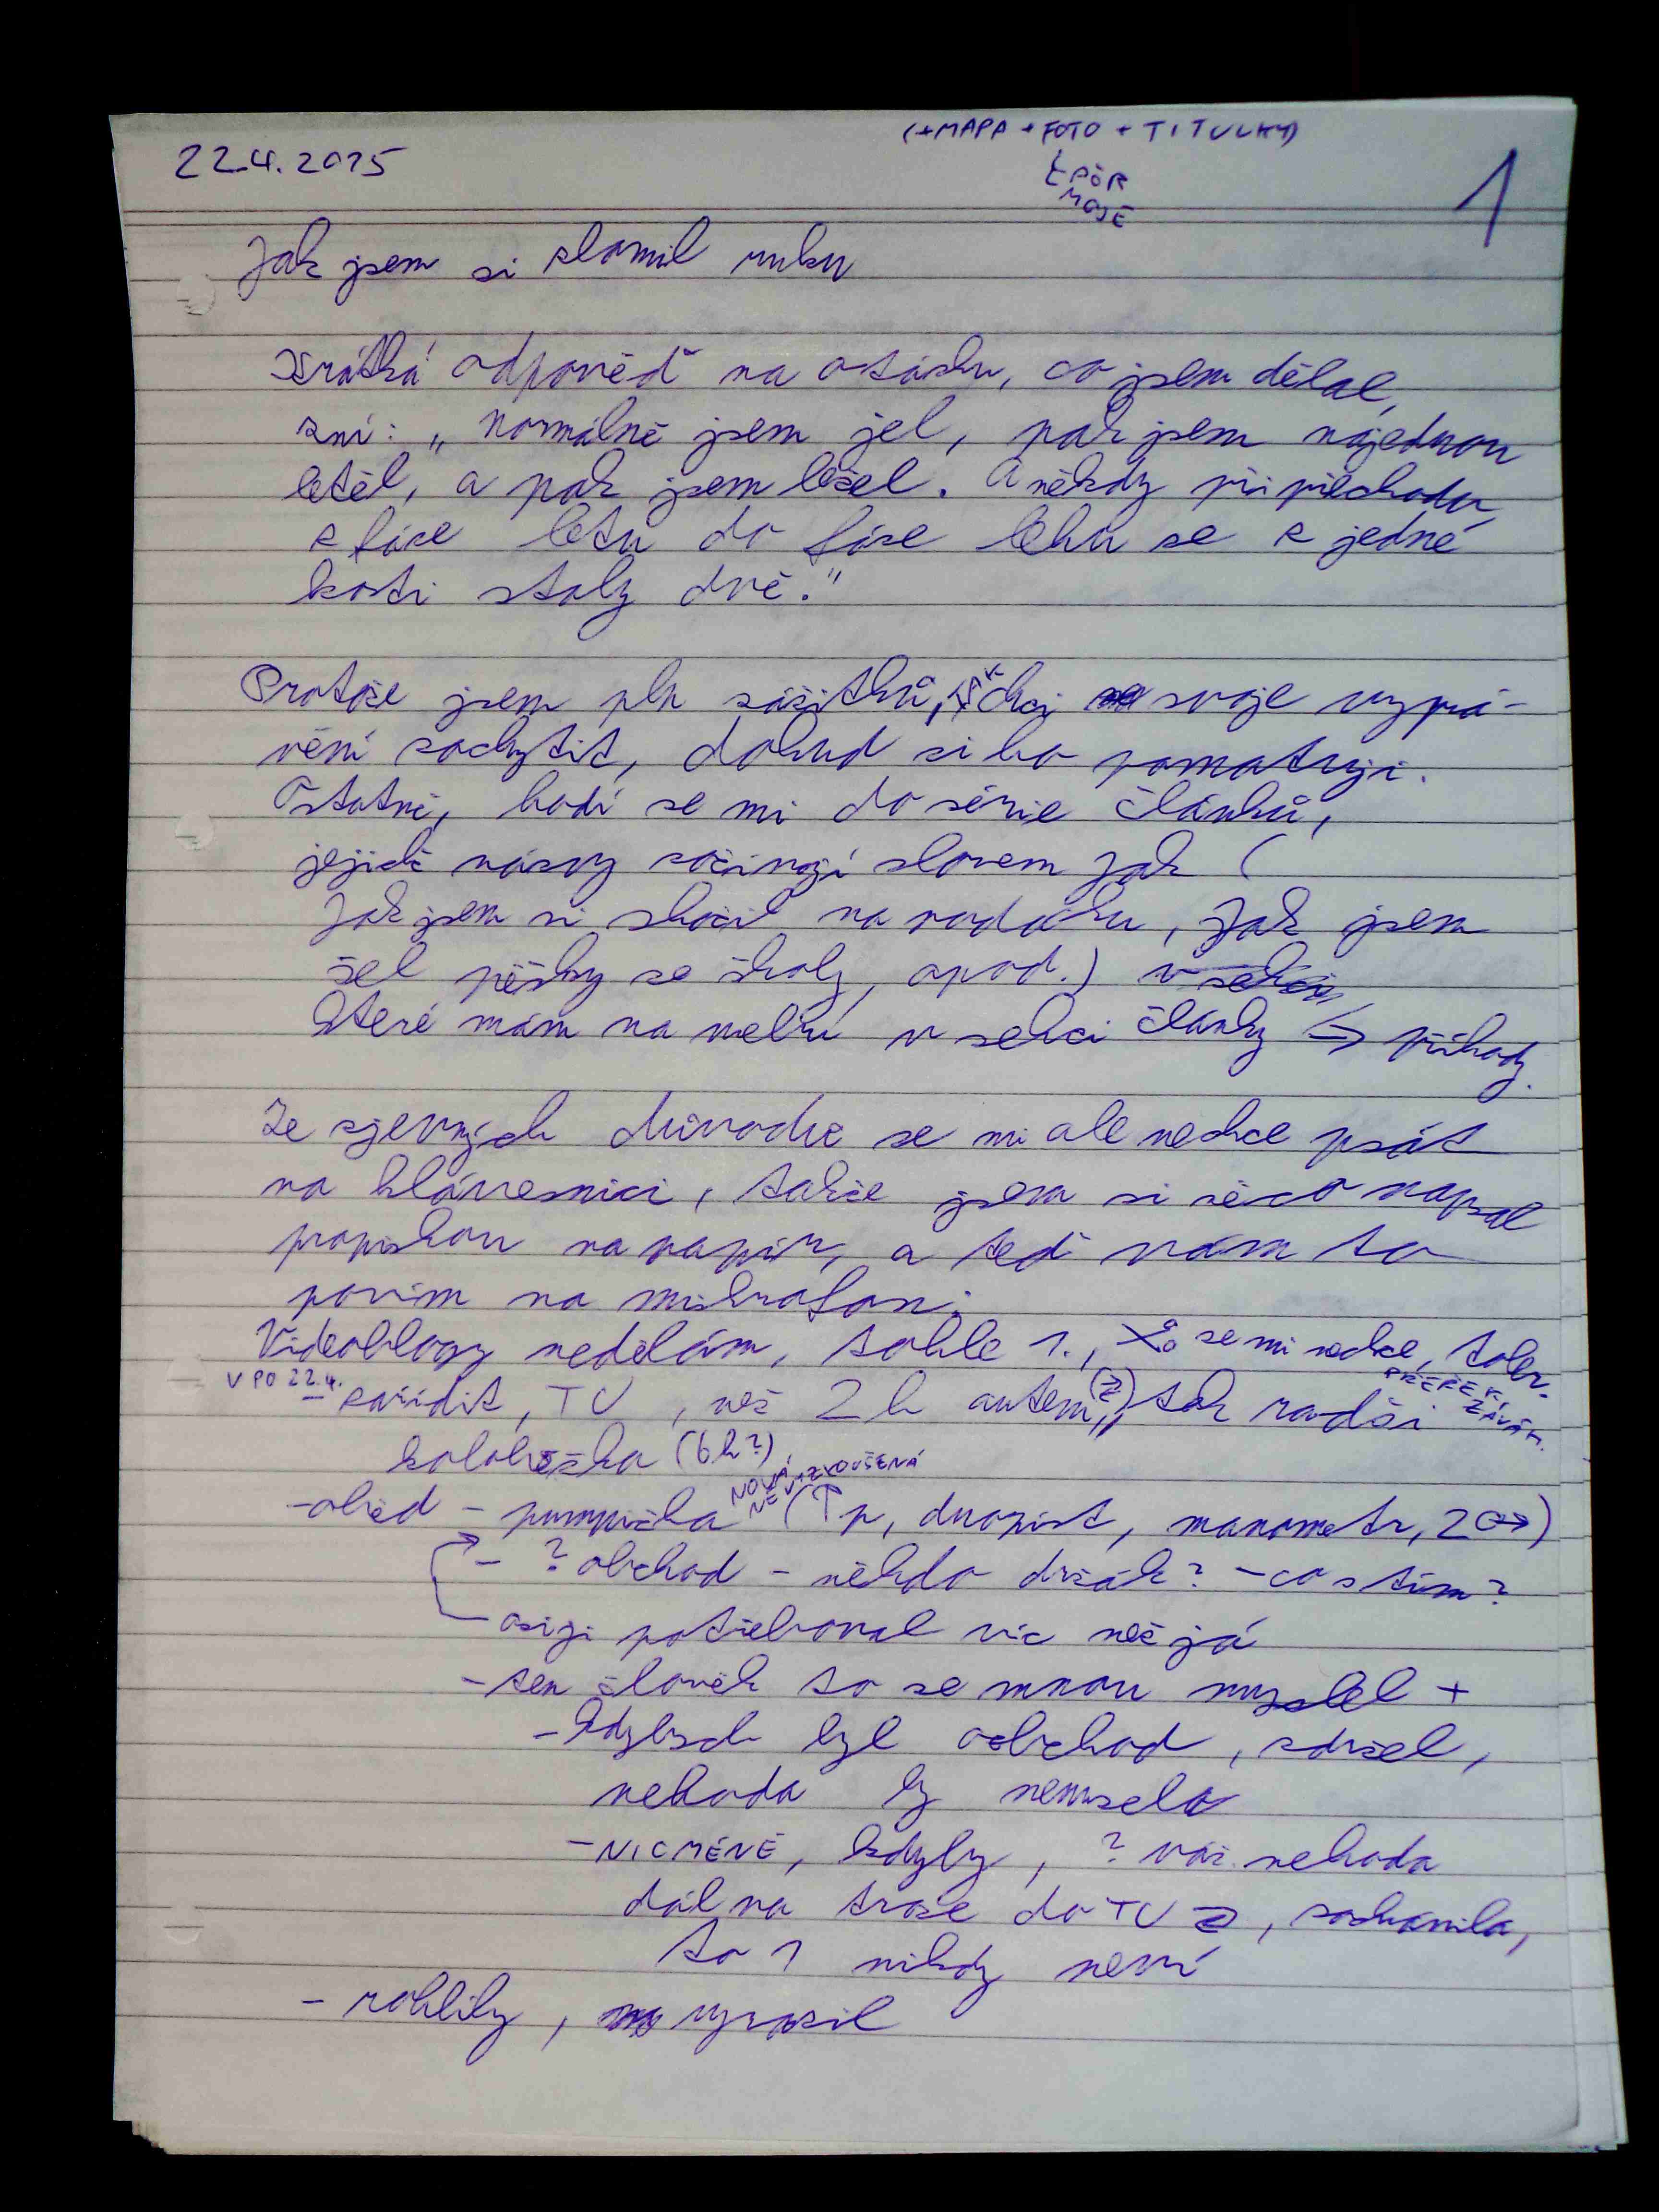 22.4.2025
(+MAPA + FOTO + TITULKY)
MOJE
1
Jak jsem si zlomil ruku
Krátká odpověď na otázku, co jsem dělal,
zní: „Normálně jsem jel, pak jsem najednou
letěl, a pak jsem ležel. A někdy při přechodu
z fáze letu do fáze lehu se z jedné
kosti staly dvě."
Protože jsem pln zážitků, TAK chci svoje vyprá-
vění zachytit, dokud si ho pamatuji.
Ostatně, hodí se mi do série článků,
jejichž názvy začínají slovem Jak (
Jak jsem si skočil na rodačku, Jak jsem
šel pěšky ze školy, apod.) v sekci
které mám na webu v sekci články → příhody.
Ze zjevných důvodů se mi ale nechce psát
na klávesnici, takže jsem si něco napsal
propiskou na papír, a teď vám to
povím na mikrofon.
Videoblogy nedělám, tohle 1., se mi nechce, toler.
V PO 22.4.
PŘEŘEK, ZAVÁH.
- zařídit, TU , než 2 h autem, tak radši
koloběžka (6h?)
NOVÁ NEVYZKOUŠENÁ
- oběd - pumpička (↑p, dvopíst, manometr, 2
- ? obchod - někdo držák? - co s tím?
- asi ji potřeboval víc než já
- ten člověk to se mnou myslel +
- kdybych byl obchod, zdržel,
nehoda by nemusela
- NICMÉNĚ, kdyby, ? váž. nehoda
dál na trase do TU , zachránila,
to 1 nikdy neví
- rohlíky, vyrazil